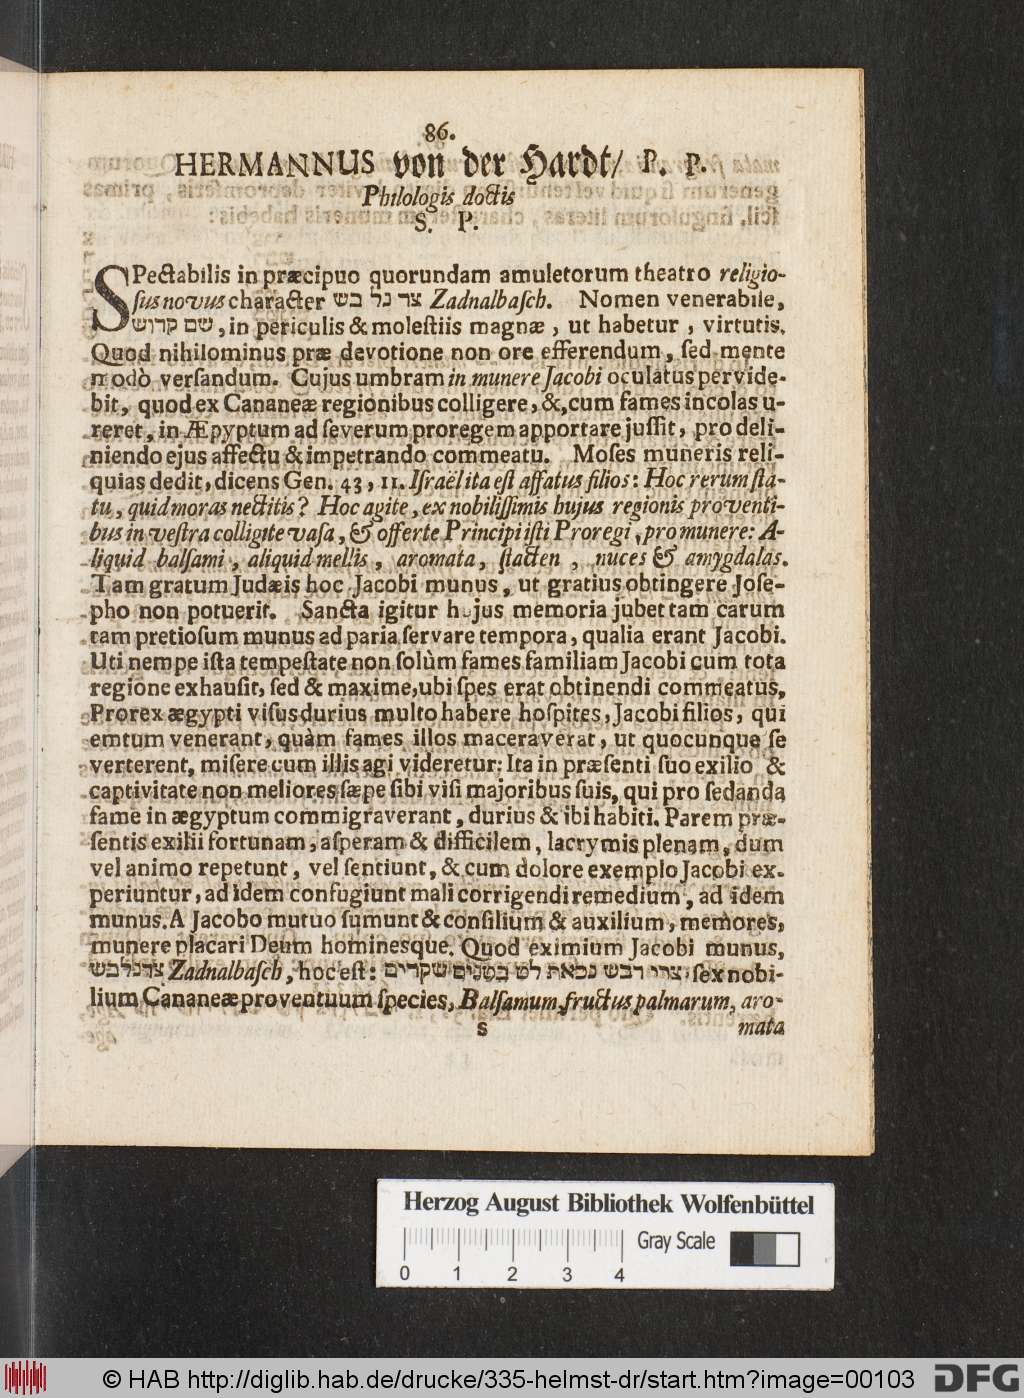 86.
HERMANNUS von der Hardt/ P. P.
Philologis doctis
S. P.
SPectabilis in præcipuo quorundam amuletorum theatro religio-
ſus novus character צד נל בש Zadnalbaſch. Nomen venerabile,
שם קדוש, in periculis & moleſtiis magnæ, ut habetur, virtutis.
Quod nihilominus præ devotione non ore efferendum, ſed mente
modò verſandum. Cujus umbram in munere Jacobi oculatus pervide-
bit, quod ex Cananeæ regionibus colligere, &, cum fames incolas u-
reret, in Æpyptum ad ſeverum proregem apportare juſſit, pro deli-
niendo ejus affectu & impetrando commeatu. Moſes muneris reli-
quias dedit, dicens Gen. 43, 11. Iſraël ita eſt affatus filios: Hoc rerum ſta-
tu, quid moras nectitis? Hoc agite, ex nobiliſſimis hujus regionis proventi-
bus in veſtra colligite vaſa, & offerte Principi iſti Proregi, pro munere: A-
liquid balſami, aliquid mellis, aromata, ſtacten, nuces & amygdalas.
Tam gratum Judæis hoc Jacobi munus, ut gratius obtingere Joſe-
pho non potuerit. Sancta igitur hujus memoria jubet tam carum
tam pretioſum munus ad paria ſervare tempora, qualia erant Jacobi.
Uti nempe iſta tempeſtate non ſolùm fames familiam Jacobi cum tota
regione exhauſit, ſed & maxime, ubi ſpes erat obtinendi commeatus,
Prorex ægypti viſus durius multo habere hoſpites, Jacobi filios, qui
emtum venerant, quàm fames illos maceraverat, ut quocunque ſe
verterent, miſere cum illis agi videretur: Ita in præſenti ſuo exilio &
captivitate non meliores ſæpe ſibi viſi majoribus ſuis, qui pro ſedanda
fame in ægyptum commigraverant, durius & ibi habiti. Parem præ-
ſentis exilii fortunam, aſperam & difficilem, lacrymis plenam, dum
vel animo repetunt, vel ſentiunt, & cum dolore exemplo Jacobi ex-
periuntur, ad idem confugiunt mali corrigendi remedium, ad idem
munus. A Jacobo mutuo ſumunt & conſilium & auxilium, memores,
munere placari Deum hominesque. Quod eximium Jacobi munus,
צדנלבש Zadnalbaſch, hoc eſt: צרי דבש נכאת לט בטנים שקדים, ſex nobi-
lium Cananeæ proventuum ſpecies, Balſamum, fructus palmarum, aro-
s mata
Herzog August Bibliothek Wolfenbüttel
Gray Scale
0 1 2 3 4
© HAB http://diglib.hab.de/drucke/335-helmst-dr/start.htm?image=00103
DFG